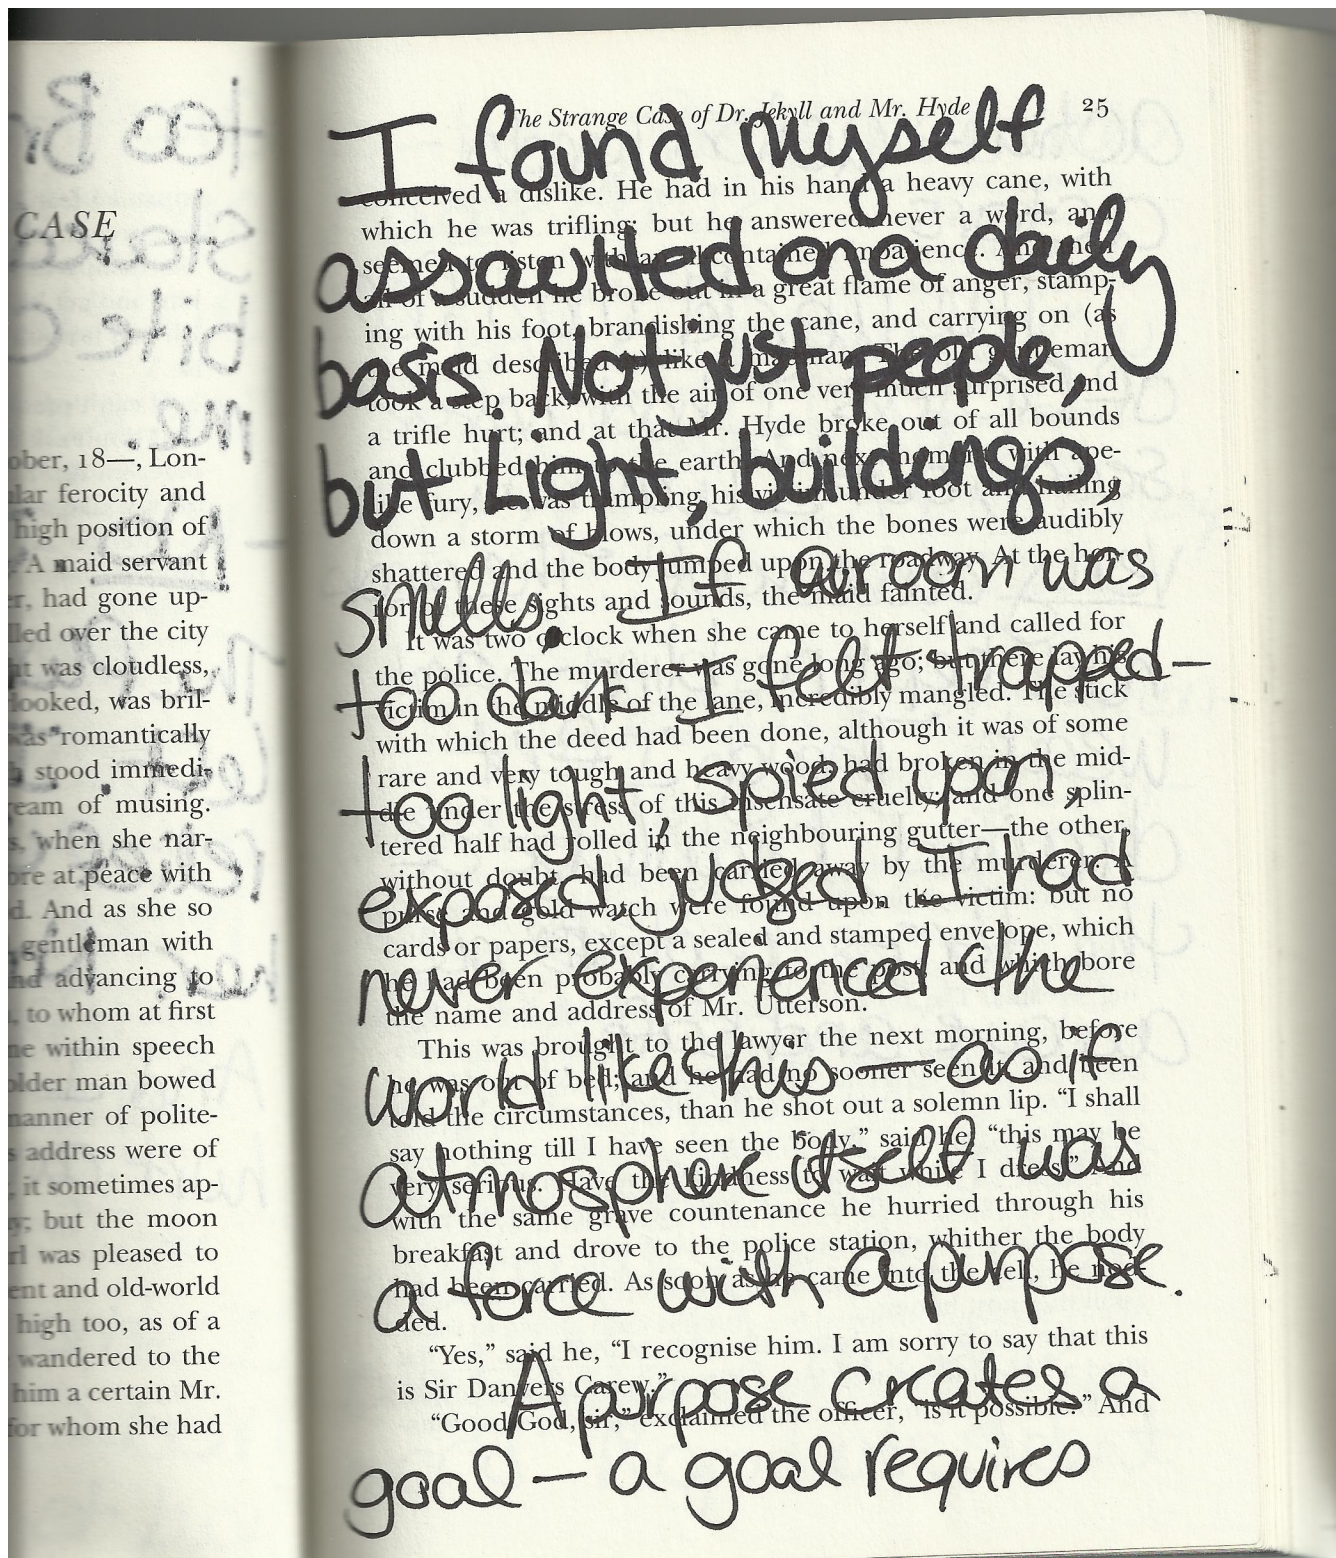 CASE
ober, 18—, Lon-
lar ferocity and
high position of
A maid servant
r, had gone up-
led over the city
ht was cloudless,
looked, was bril-
was romantically
h stood immedi-
ream of musing.
s, when she nar-
ore at peace with
d. And as she so
gentleman with
nd advancing to
, to whom at first
ne within speech
older man bowed
manner of polite-
s address were of
, it sometimes ap-
y; but the moon
rl was pleased to
ent and old-world
high too, as of a
wandered to the
him a certain Mr.
for whom she had
The Strange Case of Dr. Jekyll and Mr. Hyde 25
conceived a dislike. He had in his hand a heavy cane, with
which he was trifling; but he answered never a word, and
seemed to listen with an ill-contained impatience. And then
all of a sudden he broke out in a great flame of anger, stamp-
ing with his foot, brandishing the cane, and carrying on (as
the maid described it) like a madman. The old gentleman
took a step back, with the air of one very much surprised and
a trifle hurt; and at that Mr. Hyde broke out of all bounds
and clubbed him to the earth. And next moment, with ape-
like fury, he was trampling his victim under foot and hailing
down a storm of blows, under which the bones were audibly
shattered and the body jumped upon the roadway. At the hor-
ror of these sights and sounds, the maid fainted.
It was two o'clock when she came to herself and called for
the police. The murderer was gone long ago; but there lay his
victim in the middle of the lane, incredibly mangled. The stick
with which the deed had been done, although it was of some
rare and very tough and heavy wood, had broken in the mid-
dle under the stress of this insensate cruelty; and one splin-
tered half had rolled in the neighbouring gutter—the other,
without doubt, had been carried away by the murderer. A
purse and gold watch were found upon the victim: but no
cards or papers, except a sealed and stamped envelope, which
he had been probably carrying to the post, and which bore
the name and address of Mr. Utterson.
This was brought to the lawyer the next morning, before
he was out of bed; and he had no sooner seen it, and been
told the circumstances, than he shot out a solemn lip. “I shall
say nothing till I have seen the body,” said he; “this may be
very serious. Have the kindness to wait while I dress.” And
with the same grave countenance he hurried through his
breakfast and drove to the police station, whither the body
had been carried. As soon as he came into the cell, he nod-
ded.
“Yes,” said he, “I recognise him. I am sorry to say that this
is Sir Danvers Carew.”
“Good God, sir,” exclaimed the officer, “is it possible?” And
I found myself
assaulted on a daily
basis. Not just people,
but Light, buildings,
smells. If a room was
too dark I felt trapped—
too light, spied upon,
exposed, judged. I had
never experienced the
world like this — as if
atmosphere itself was
a force with a purpose.
A purpose creates a
goal — a goal requires